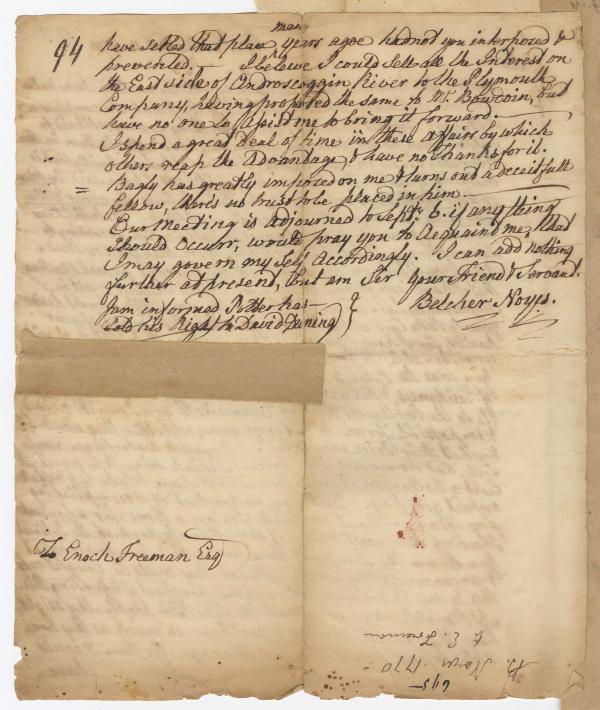 94
many
have setled that place years agoe had not you interposed &
prevented. — I beleive I could sell all the Interest on
the East side of Androscoggin River to the Plymouth
Company, having proposed the same to Mr. Bowdoin, but
have no one to Assist me to bring it forward. —
I spend a great Deal of time in these affairs by which
others reap the Advantage & have no thanks for it.
= Bagly has greatly imposed on me & turns out a deceitfull
fellow, there's no trust to be placed in him —
Our Meeting is Adjourned to Septr. 6. if any thing
should occurr, would pray you to Acquaint me, that
I may govern my Self Accordingly. I can add nothing
further at present, but am Sir Your Friend & Servant.
Belcher Noyes.
I am informed Potter has —
sold his Right to David Duning
To Enoch Freeman Esq
to E. Freeman
B. Noyes 1770 -
695